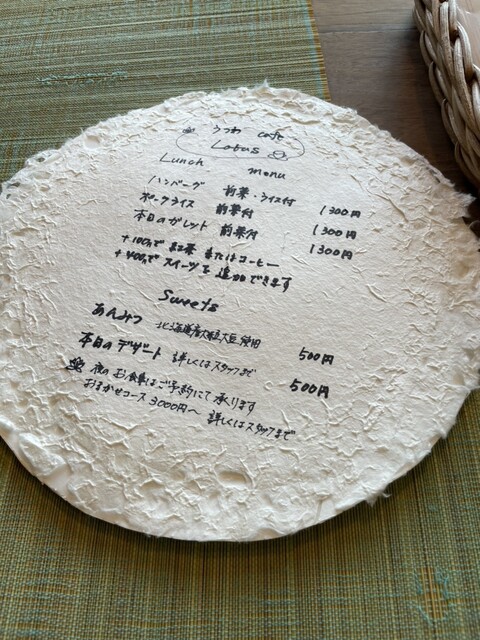 うつわ cafe
Lotus
Lunch menu
ハンバーグ 前菜・ライス付 1300円
ポークライス 前菜付 1300円
本日のガレット 前菜付 1300円
+100円で 紅茶 またはコーヒー
+400円で スイーツを 追加できます
Sweets
あんみつ 北海道産大粒大豆使用 500円
本日のデザート 詳しくはスタッフまで 500円
夜のお食事はご予約にて承ります
おまかせコース 3000円〜 詳しくはスタッフまで